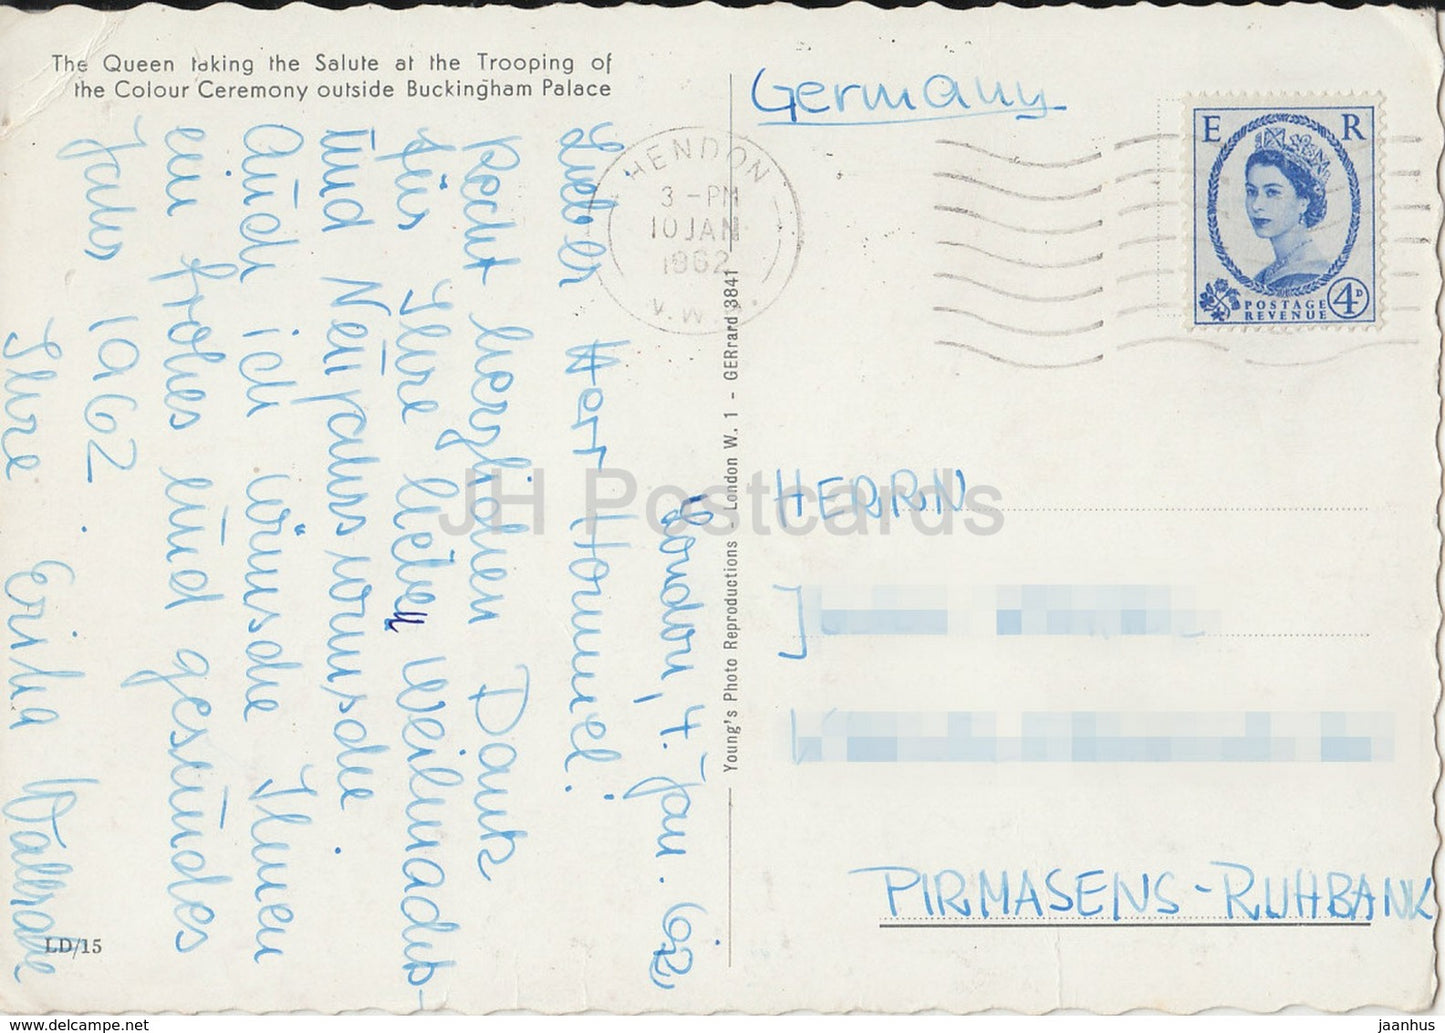 The Queen taking the Salute at the Trooping of
the Colour Ceremony outside Buckingham Palace
London, 4. Jan. 62
Lieber Herr Hommel!
Recht herzlichen Dank
für Ihre lieben Weihnachts-
und Neujahrswünsche.
Auch ich wünsche Ihnen
ein frohes und gesundes
Jahr 1962.
Ihre Erika
LD/15
Young's Photo Reproductions - London W. 1 - GERrard 3841
HENDON
3 - PM
10 JAN
1962
N.W.4.
Germany
E R
POSTAGE
REVENUE
4D
HERRN
J
PIRMASENS-RUHBANK
JH Postcards
hip-bid.com
jaanhus